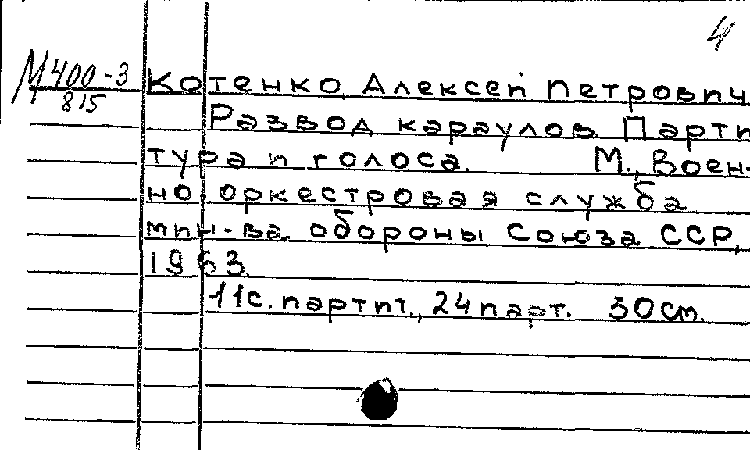 4
М400-3
815
Котенко, Алексей Петрович.
Развод караулов. Парти-
тура и голоса. М., Воен-
но-оркестровая служба
мин-ва обороны Союза ССР,
1963.
11с. партит., 24 парт. 30 см.